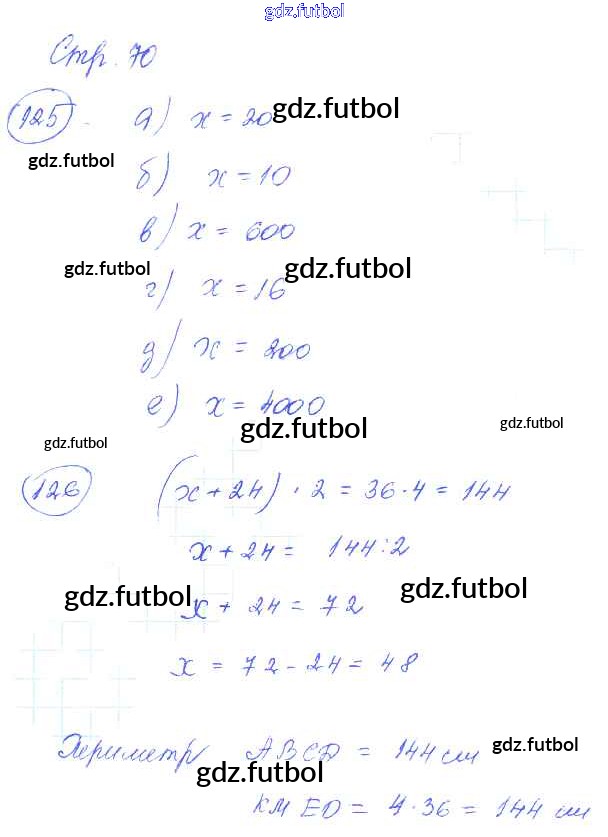 gdz.futbol
Стр. 70
125 а) x = 20 gdz.futbol
gdz.futbol б) x = 10
в) x = 600
gdz.futbol г) x = 16 gdz.futbol
д) x = 200
е) x = 4000
gdz.futbol gdz.futbol gdz.futbol
126 (x + 24) · 2 = 36 · 4 = 144
x + 24 = 144 : 2
gdz.futbol x + 24 = 72 gdz.futbol
x = 72 - 24 = 48
Периметр ABCD = 144 см gdz.futbol
gdz.futbol
KMEO = 4 · 36 = 144 см